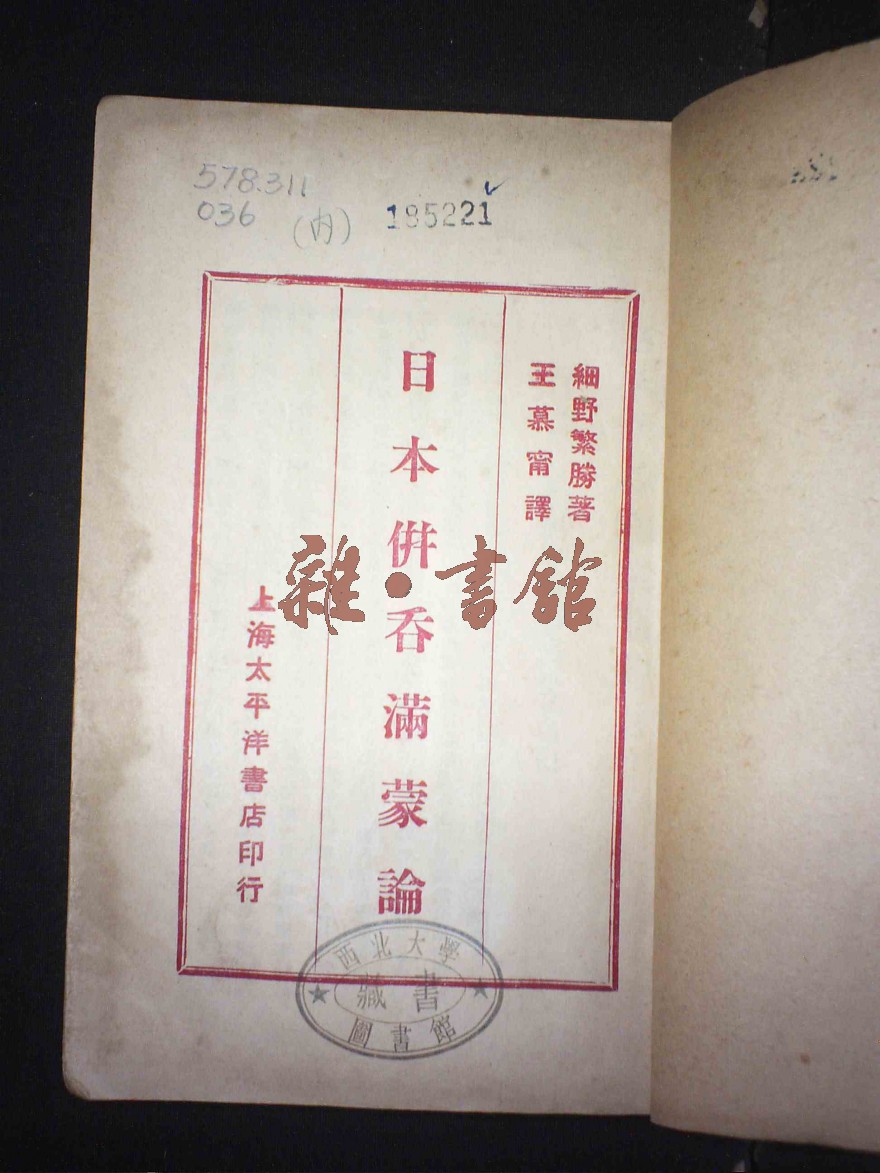 578.311
036 (内) 185221
細野繁勝著
王慕甯譯
日本併吞滿蒙論
上海太平洋書店印行
雜·書館
西北大學
藏書
圖書館